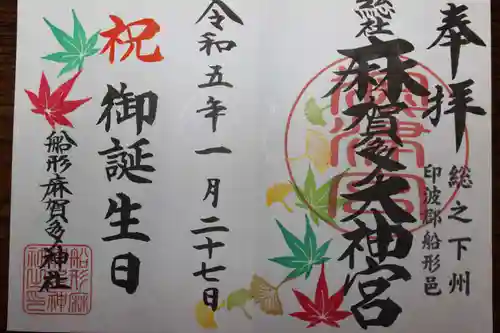 奉拝
総之下州
印波郡船形邑
総社
麻賀多大神宮
令和五年一月二十七日
祝
御誕生日
船形麻賀多神社